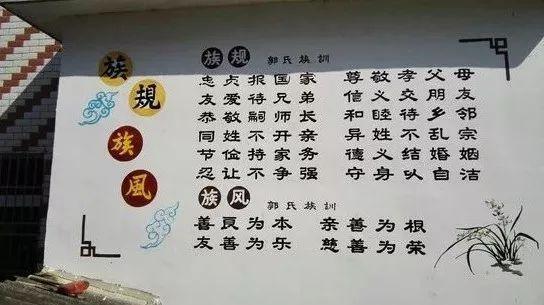 族規
族風
族规 郭氏族訓
忠贞报国家 尊敬孝父母
友爱待兄弟 信义交朋友
恭敬嗣师长 和睦待乡邻
同姓不开亲 异姓不乱宗
节俭持家务 德义结婚姻
忍让不争强 守身以自洁
族风 郭氏族訓
善良为本 亲善为根
友善为乐 慈善为荣